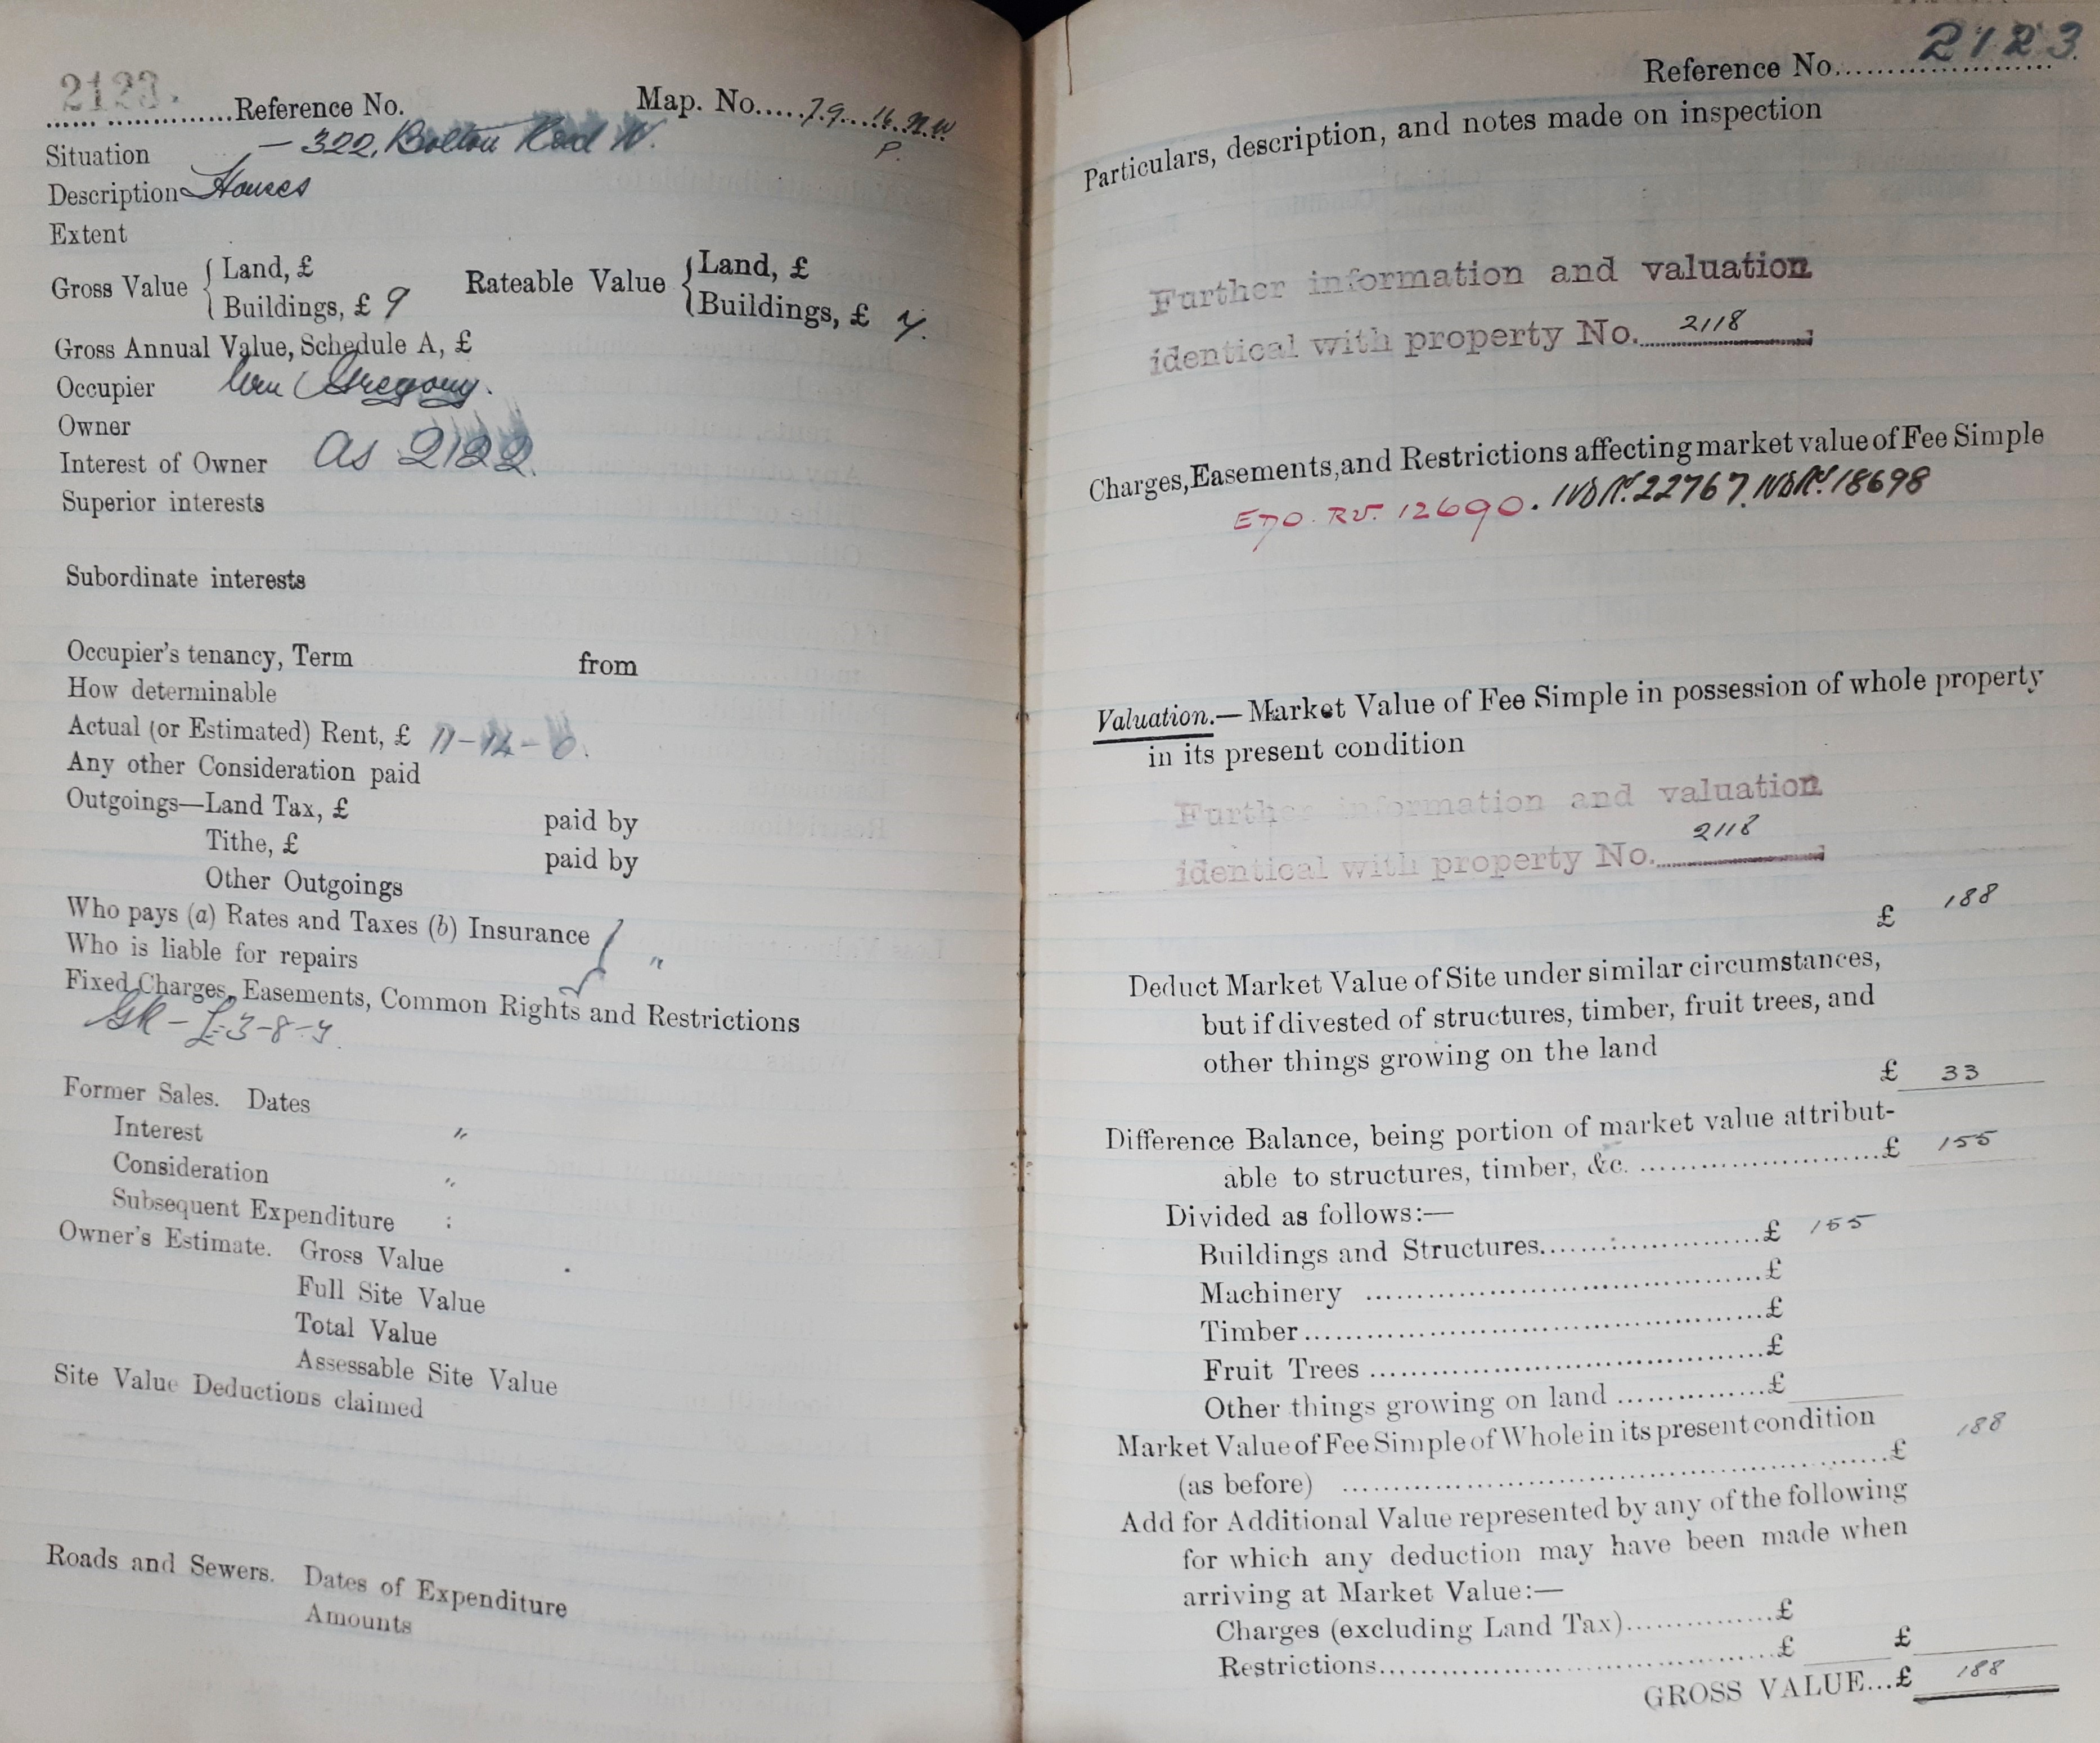 2123. Reference No. Map. No. 79. 16. N.W
P.
Situation — 322, Bolton Road N.
Description Houses
Extent
Gross Value { Land, £ Rateable Value { Land, £
Buildings, £ 9 Buildings, £ 7.
Gross Annual Value, Schedule A, £
Occupier Wm Gregory.
Owner
Interest of Owner as 2122.
Superior interests
Subordinate interests
Occupier's tenancy, Term from
How determinable
Actual (or Estimated) Rent, £ 11-14-0.
Any other Consideration paid
Outgoings—Land Tax, £ paid by
Tithe, £ paid by
Other Outgoings
Who pays (a) Rates and Taxes (b) Insurance
Who is liable for repairs "
Fixed Charges, Easements, Common Rights and Restrictions
GR - £3-8-9.
Former Sales. Dates
Interest "
Consideration "
Subsequent Expenditure
Owner's Estimate. Gross Value
Full Site Value
Total Value
Assessable Site Value
Site Value Deductions claimed
Roads and Sewers. Dates of Expenditure
Amounts
Reference No. 2123.
Particulars, description, and notes made on inspection
Further information and valuation
identical with property No. 2118
Charges, Easements, and Restrictions affecting market value of Fee Simple
RV. 12690. 22767. 18698
Valuation.—Market Value of Fee Simple in possession of whole property
in its present condition
Further information and valuation
identical with property No. 2118
£ 188
Deduct Market Value of Site under similar circumstances,
but if divested of structures, timber, fruit trees, and
other things growing on the land
£ 33
Difference Balance, being portion of market value attribut-
able to structures, timber, &c. £ 155
Divided as follows:—
Buildings and Structures £ 155
Machinery £
Timber £
Fruit Trees £
Other things growing on land £
Market Value of Fee Simple of Whole in its present condition
(as before) £ 188
Add for Additional Value represented by any of the following
for which any deduction may have been made when
arriving at Market Value:—
Charges (excluding Land Tax) £
Restrictions £ £
GROSS VALUE...£ 188